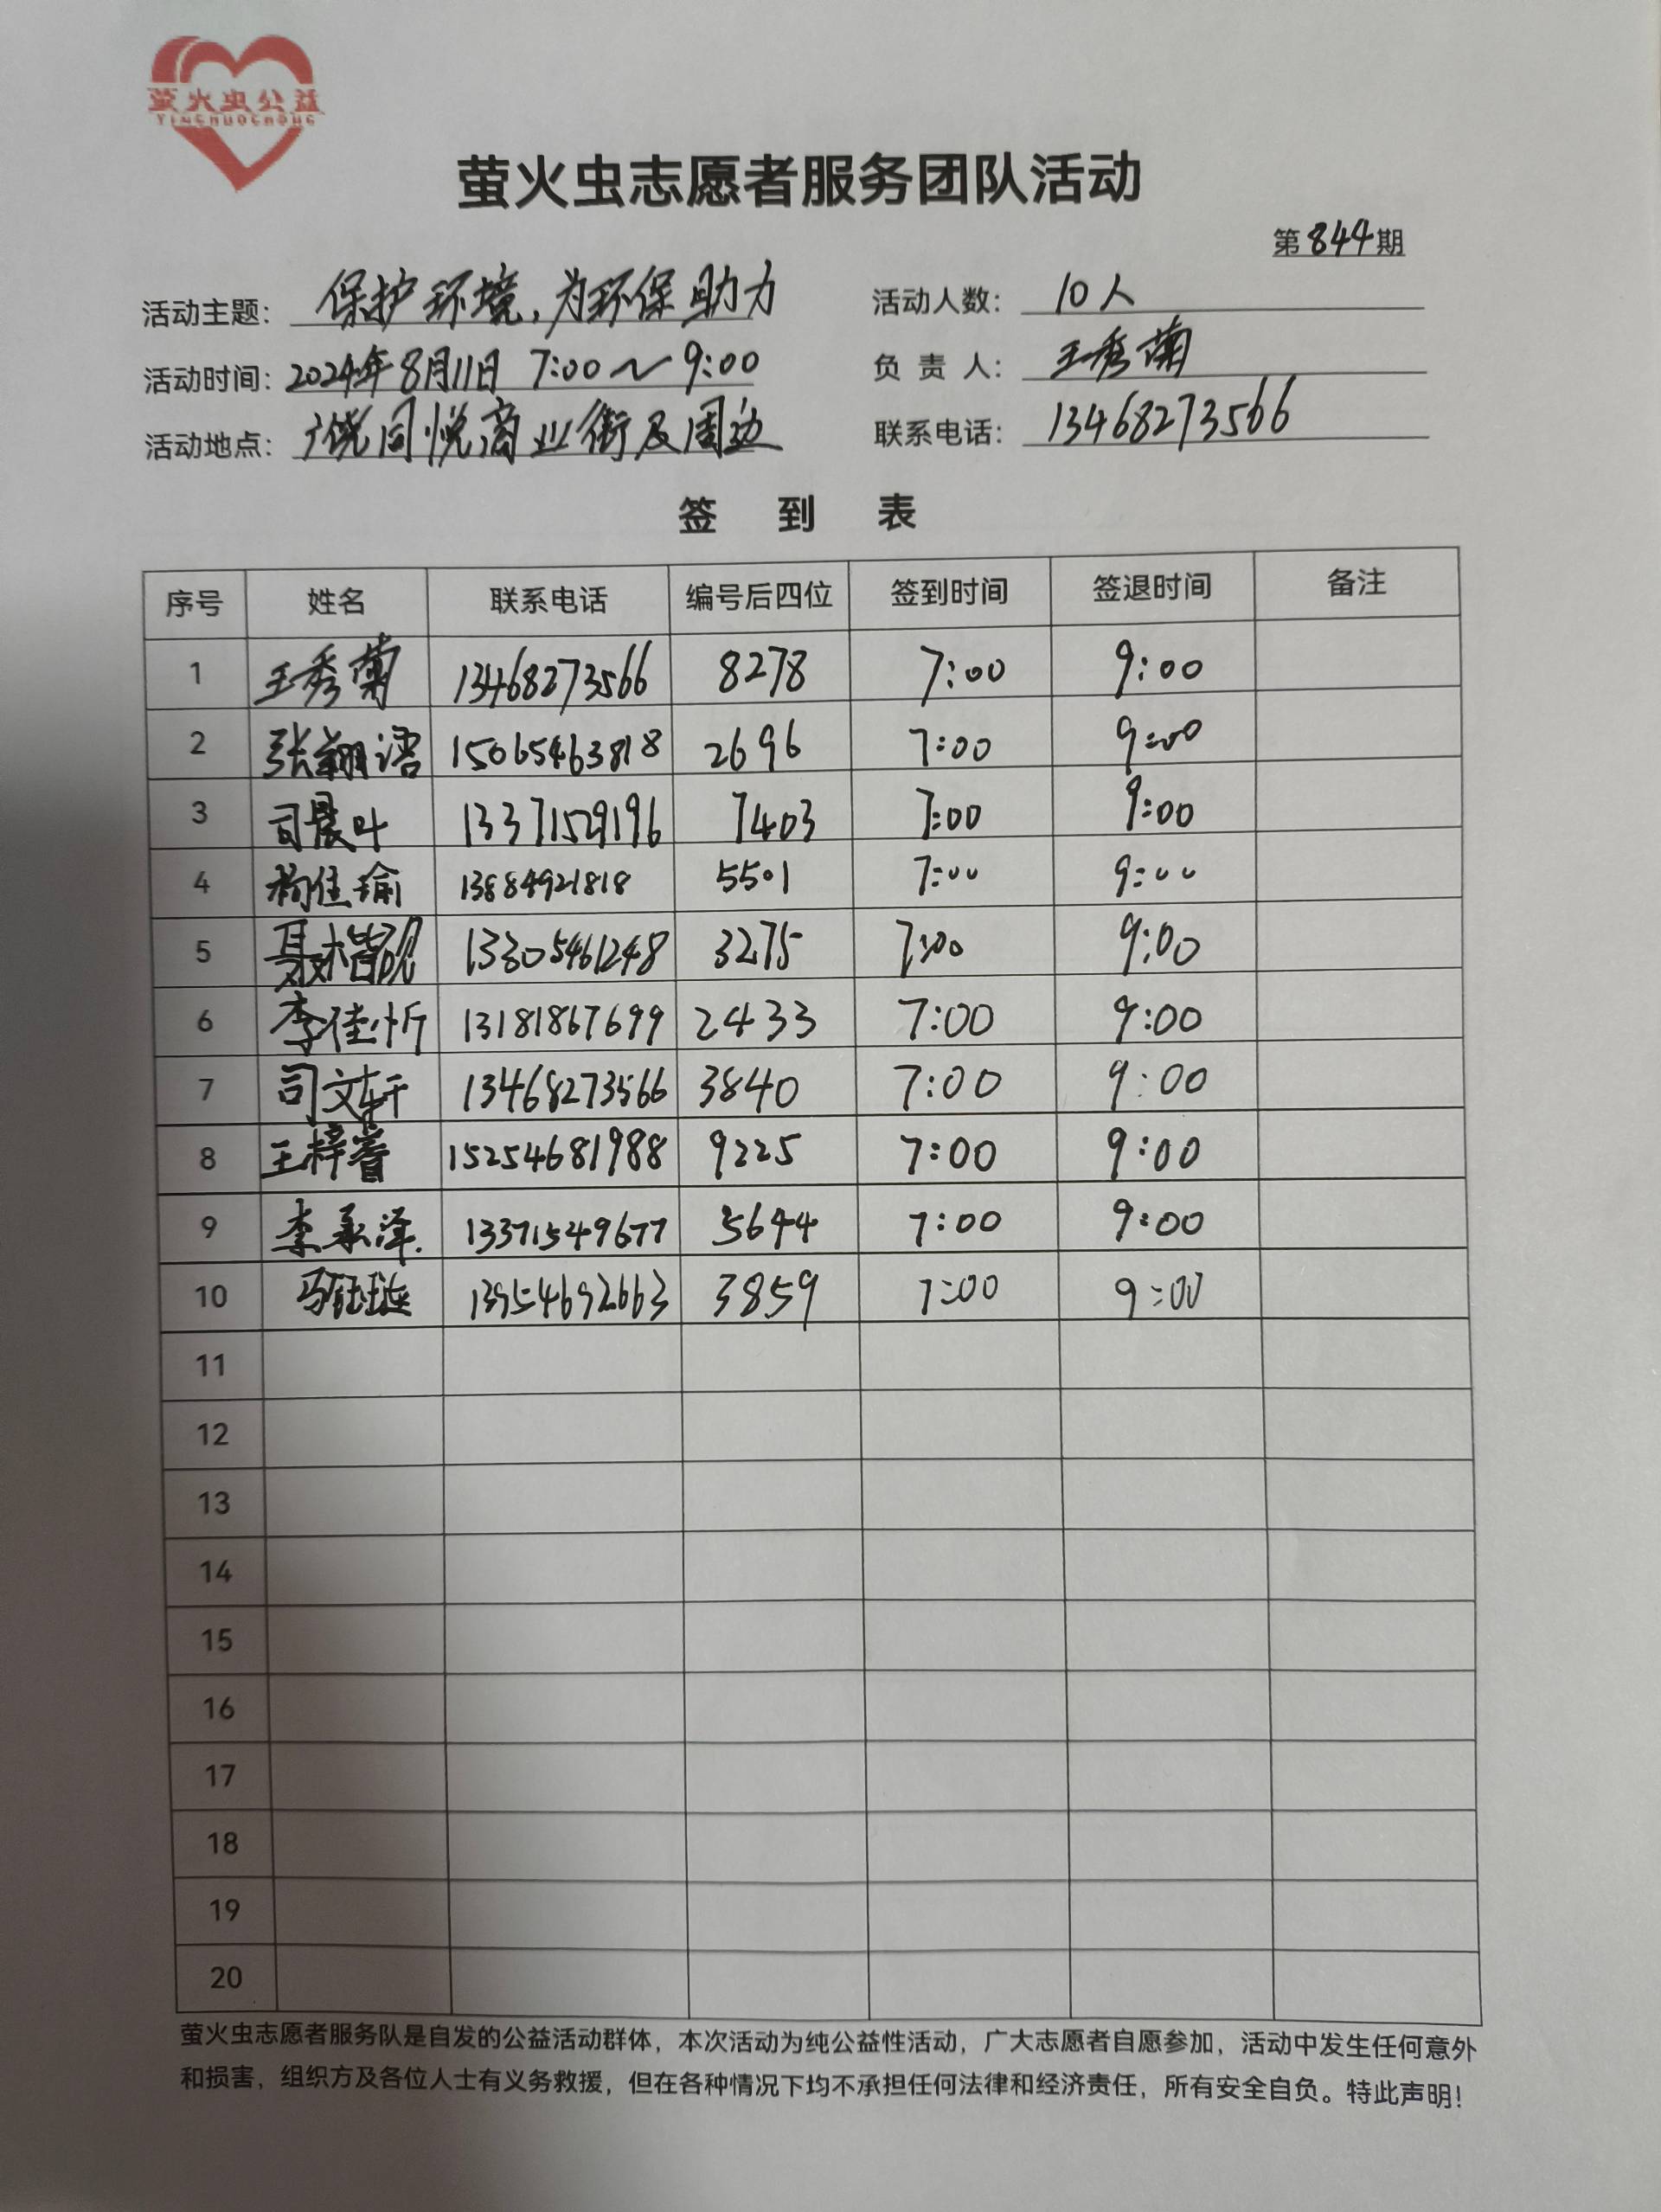 萤火虫公益
YINGHUOCHONG
萤火虫志愿者服务团队活动
第844期
活动主题: 保护环境,为环保助力 活动人数: 10人
活动时间: 2024年8月11日 7:00~9:00 负责人: 王秀菊
活动地点: 广饶同悦商业街及周边 联系电话: 13468273566
签到表
序号 姓名 联系电话 编号后四位 签到时间 签退时间 备注
1 王秀菊 13468273566 8278 7:00 9:00
2 张翮 15065463818 2696 7:00 9:00
3 司晨叶 13371529196 7403 7:00 9:00
4 佳瑜 13884921818 5501 7:00 9:00
5 聂楷砚 13305461248 3275 7:00 9:00
6 李佳忻 13181867699 2433 7:00 9:00
7 司文轩 13468273566 3840 7:00 9:00
8 王梓睿 15254681988 9225 7:00 9:00
9 李承泽 13371549677 5644 7:00 9:00
10 马钰琁 13954692663 3859 7:00 9:00
11
12
13
14
15
16
17
18
19
20
萤火虫志愿者服务队是自发的公益活动群体,本次活动为纯公益性活动,广大志愿者自愿参加,活动中发生任何意外
和损害,组织方及各位人士有义务救援,但在各种情况下均不承担任何法律和经济责任,所有安全自负。特此声明!